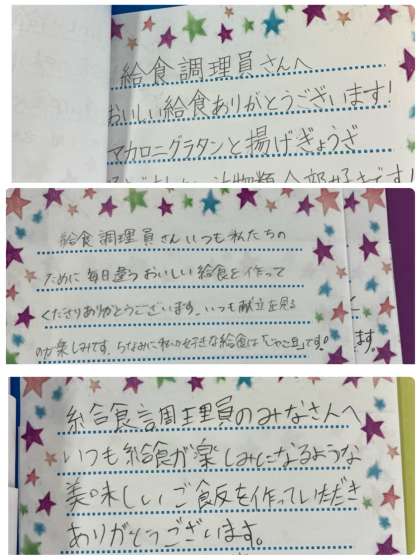 給食調理員さんへ
おいしい給食ありがとうございます!
マカロニグラタンと揚げぎょうざ
汁物類全部好きです!
給食調理員さんいつも私たちの
ために毎日違うおいしい給食を作って
くださりありがとうございます。いつも献立を見る
のが楽しみです。ちなみに私の好きな給食は「じゃこ豆」です。
ます。
給食調理員のみなさんへ
いつも給食が楽しみになるような
美味しいご飯を作っていただき
ありがとうございます。